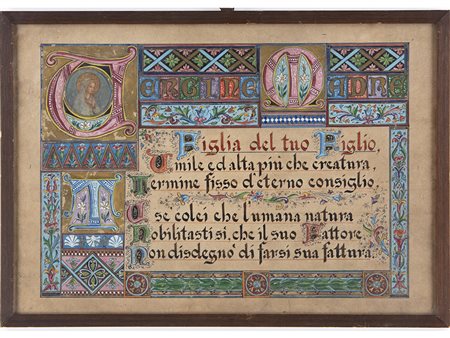 Vergine Madre
Figlia del tuo Figlio,
Umile ed alta più che creatura,
Termine fisso d'eterno consiglio,
Tu se colei che l'umana natura
Nobilitasti si, che il suo Fattore
Non disdegnò di farsi sua fattura.